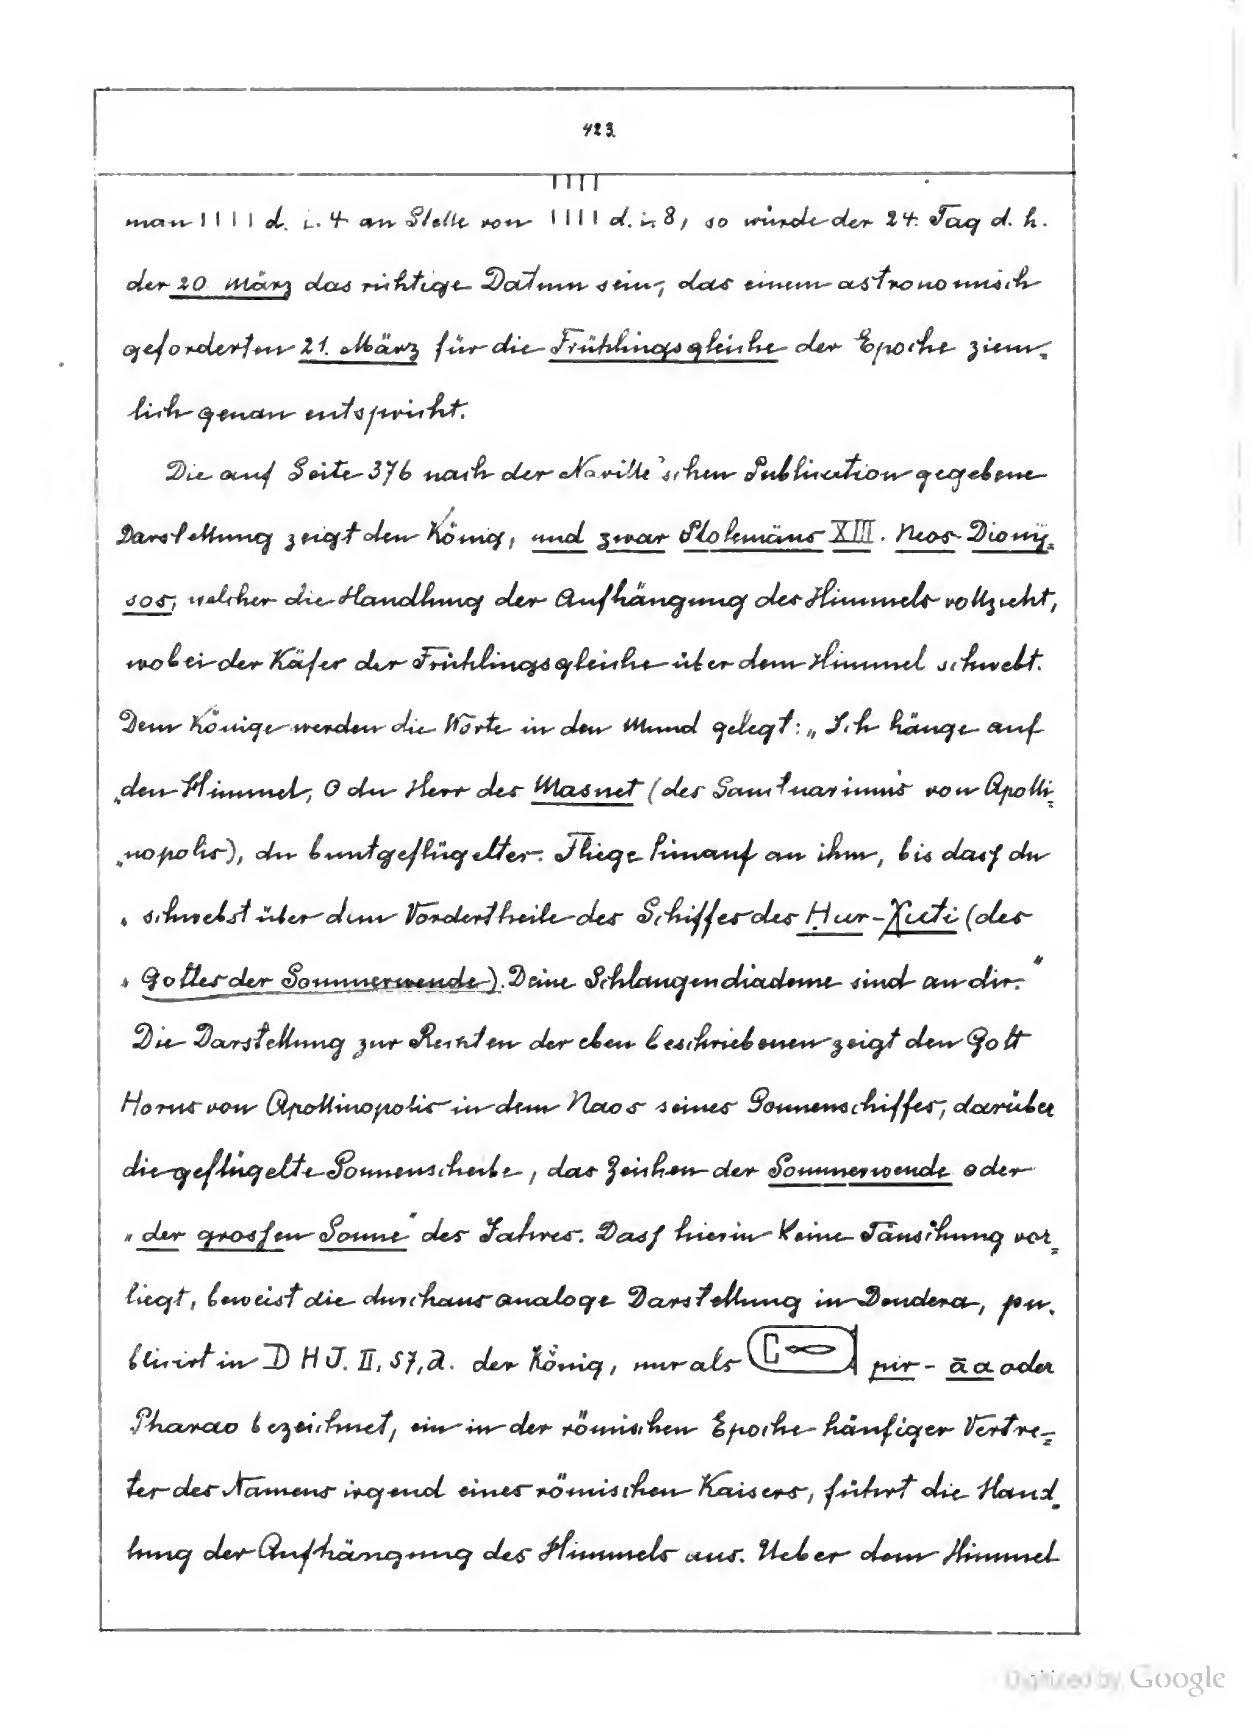 423.
man IIII d. i. 4 an Stelle von IIII IIII d. i. 8, so würde der 24. Tag d. h.
der 20 März das richtige Datum sein, das einem astronomisch
geforderten 21. März für die Frühlingsgleiche der Epoche ziem-
lich genau entspricht.
Die auf Seite 376 nach der Naville'schen Publication gegebene
Darstellung zeigt den König, und zwar Ptolemäus XIII. Neos Diony-
sos, welcher die Handlung der Aufhängung des Himmels vollzieht,
wobei der Käfer der Frühlingsgleiche über dem Himmel schwebt.
Dem Könige werden die Worte in den Mund gelegt: „Ich hänge auf
„den Himmel, O du Herr des Masnet (des Sanctuariums von Apolli-
„nopolis), du buntgeflügelter. Fliege hinauf an ihm, bis dass du
„schwebst über dem Vordertheile des Schiffes des Ḥur-χuti (des
„Gottes der Sommerwende). Deine Schlangendiademe sind an dir."
Die Darstellung zur Rechten der eben beschriebenen zeigt den Gott
Horus von Apollinopolis in dem Naos seines Sonnenschiffes, darüber
die geflügelte Sonnenscheibe, das Zeichen der Sommerwende oder
„der grossen Sonne" des Jahres. Dass hierin keine Täuschung vor-
liegt, beweist die durchaus analoge Darstellung in Dendera, pu-
blicirt in D H J. II, 57, 2. der König, nur als pir-āa oder
Pharao bezeichnet, ein in der römischen Epoche häufiger Vertre-
ter des Namens irgend eines römischen Kaisers, führt die Hand-
lung der Aufhängung des Himmels aus. Ueber dem Himmel
Digitized by Google